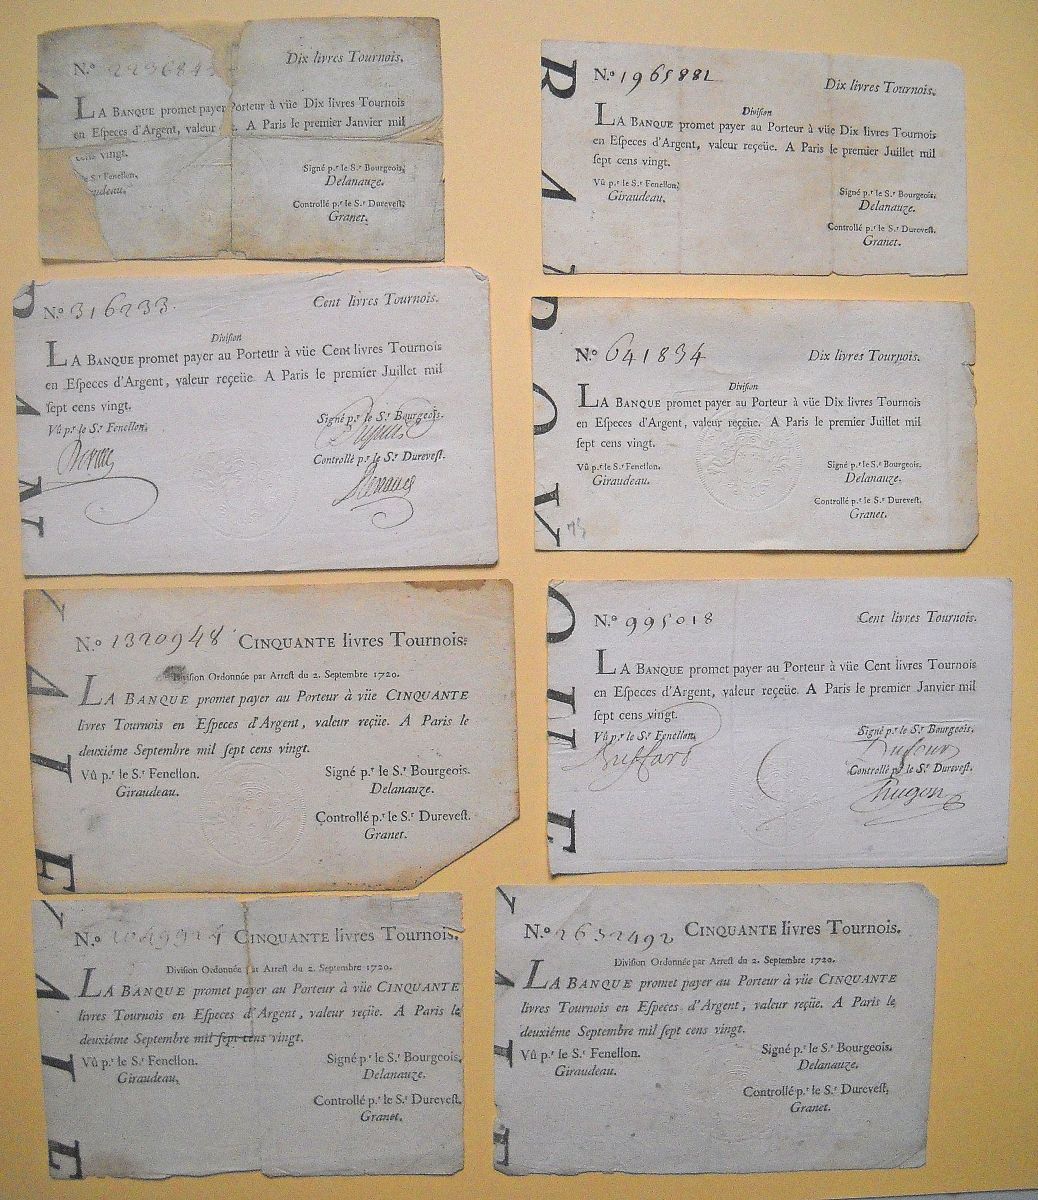 Dix livres Tournois.
N.º
LA BANQUE promet payer Porteur à vüe Dix livres Tournois
en Eſpeces d'Argent, valeur A Paris le premier Janvier mil
cens vingt.
le S.r Fenellon.
Giraudeau.
Signé p.r le S.r Bourgeois.
Delanauze.
Controllé p.r le S.r Dureveſt.
Granet.
N.º 1965882
Dix livres Tournois.
Diviſion
LA BANQUE promet payer au Porteur à vüe Dix livres Tournois
en Eſpeces d'Argent, valeur reçeüe. A Paris le premier Juillet mil
ſept cens vingt.
Vû p.r le S.r Fenellon.
Giraudeau.
Signé p.r le S.r Bourgeois.
Delanauze.
Controllé p.r le S.r Dureveſt.
Granet.
N.º 316233.
Cent livres Tournois.
Diviſion
LA BANQUE promet payer au Porteur à vüe Cent livres Tournois
en Eſpeces d'Argent, valeur reçeüe. A Paris le premier Juillet mil
ſept cens vingt.
Vû p.r le S.r Fenellon.
Signé p.r le S.r Bourgeois.
Controllé p.r le S.r Dureveſt.
N.º 641834
Dix livres Tournois.
Diviſion
LA BANQUE promet payer au Porteur à vüe Dix livres Tournois
en Eſpeces d'Argent, valeur reçeüe. A Paris le premier Juillet mil
ſept cens vingt.
Vû p.r le S.r Fenellon.
Giraudeau.
Signé p.r le S.r Bourgeois.
Delanauze.
Controllé p.r le S.r Dureveſt.
Granet.
N.º 1320948 CINQUANTE livres Tournois.
Diviſion Ordonnée par Arreſt du 2. Septembre 1720.
LA BANQUE promet payer au Porteur à vüe CINQUANTE
livres Tournois en Eſpeces d'Argent, valeur reçüe. A Paris le
deuxiéme Septembre mil ſept cens vingt.
Vû p.r le S.r Fenellon.
Giraudeau.
Signé p.r le S.r Bourgeois.
Delanauze.
Controllé p.r le S.r Dureveſt.
Granet.
N.º 995018
Cent livres Tournois.
LA BANQUE promet payer au Porteur à vüe Cent livres Tournois
en Eſpeces d'Argent, valeur reçeüe. A Paris le premier Janvier mil
ſept cens vingt.
Vû p.r le S.r Fenellon.
Signé p.r le S.r Bourgeois.
Controllé p.r le S.r Dureveſt.
N.º CINQUANTE livres Tournois.
Diviſion Ordonnée par Arreſt du 2. Septembre 1720.
LA BANQUE promet payer au Porteur à vüe CINQUANTE
livres Tournois en Eſpeces d'Argent, valeur reçüe. A Paris le
deuxiéme Septembre mil ſept cens vingt.
Vû p.r le S.r Fenellon.
Giraudeau.
Signé p.r le S.r Bourgeois.
Delanauze.
Controllé p.r le S.r Dureveſt.
Granet.
N.º 2632492 CINQUANTE livres Tournois.
Diviſion Ordonnée par Arreſt du 2. Septembre 1720.
LA BANQUE promet payer au Porteur à vüe CINQUANTE
livres Tournois en Eſpeces d'Argent, valeur reçüe. A Paris le
deuxiéme Septembre mil ſept cens vingt.
Vû p.r le S.r Fenellon.
Giraudeau.
Signé p.r le S.r Bourgeois.
Delanauze.
Controllé p.r le S.r Dureveſt.
Granet.